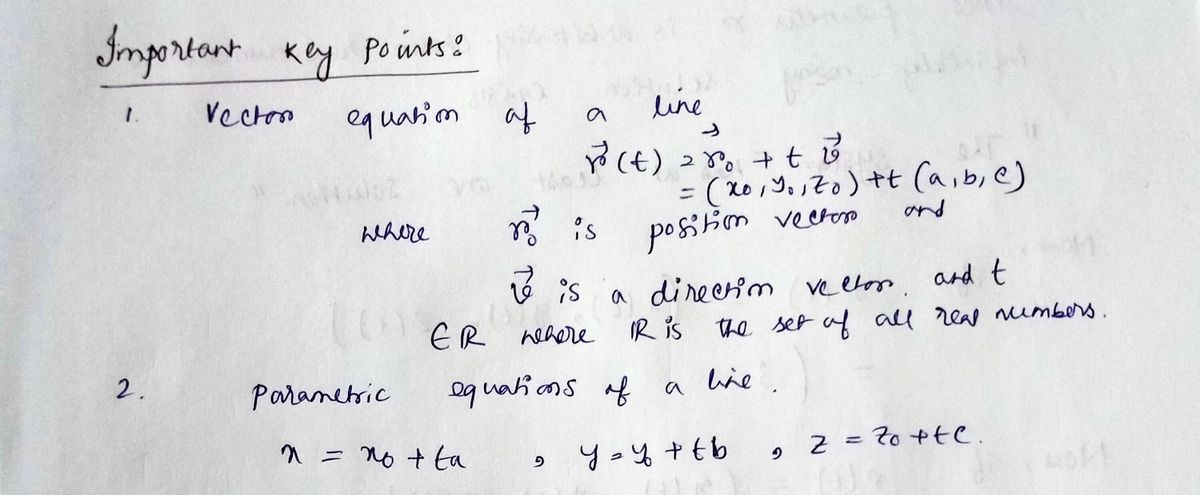 Important Key Points:
1. Vector equation of a line
r⃗(t) = r⃗₀ + t v⃗
= (x₀, y₀, z₀) + t (a, b, c)
where r⃗₀ is position vector and
v⃗ is a direction vector. and t
∈ R where ℝ is the set of all real numbers.
2. Parametric equations of a line.
x = x₀ + ta , y = y₀ + tb , z = z₀ + tc.